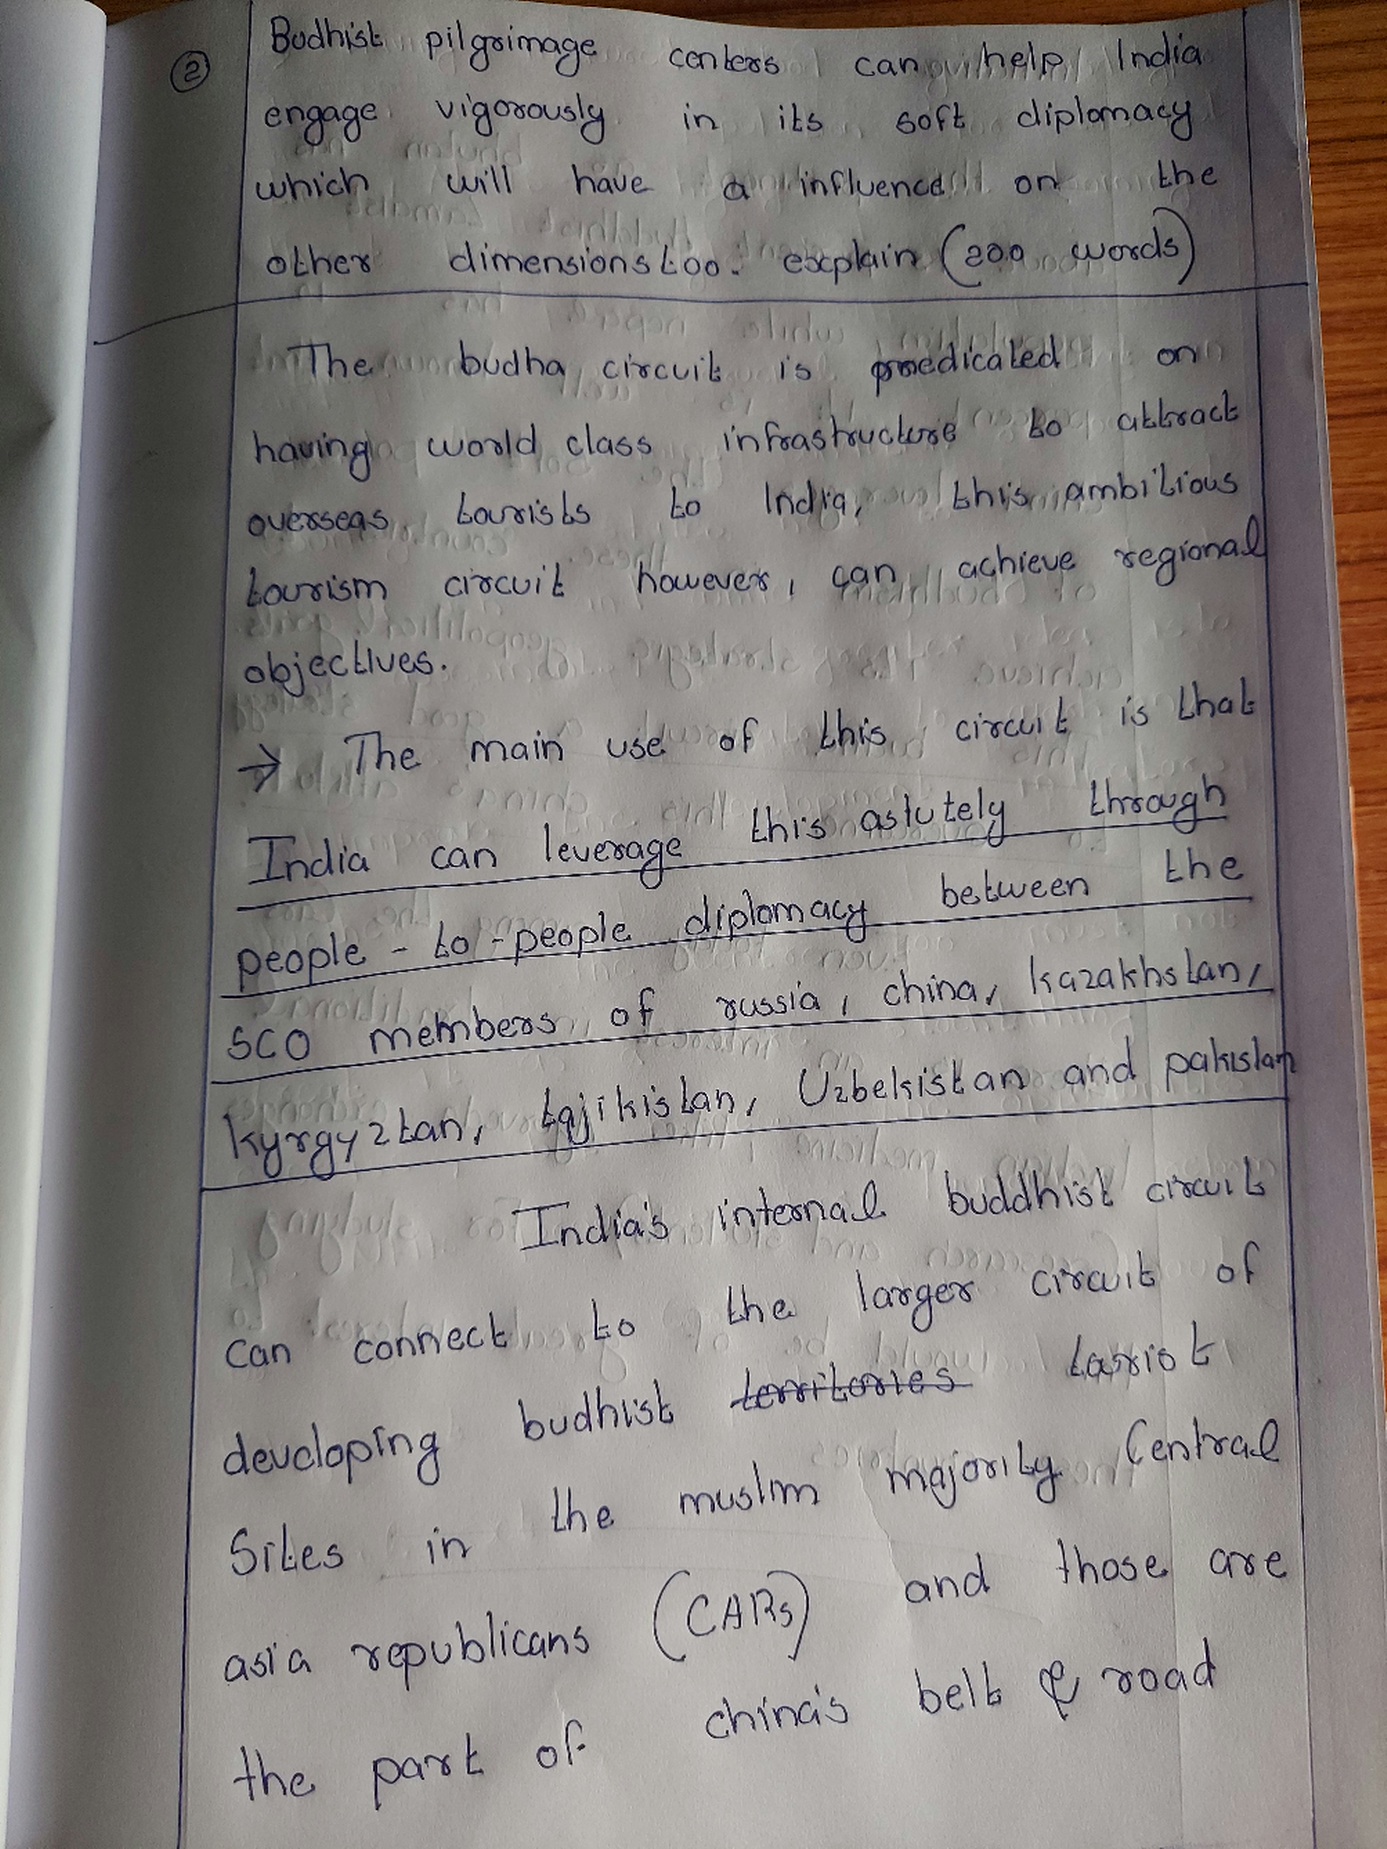 ②
Budhist pilgrimage centers can help India
engage vigorously in its soft diplomacy
which will have a influence on the
other dimensions too. explain (200 words)
The budha circuit is predicated on
having world class infrastructure to attract
overseas tourists to India, this ambitious
tourism circuit however, can achieve regional
objectives.
→ The main use of this circuit is that
India can leverage this astutely through
people-to-people diplomacy between the
SCO members of russia, china, kazakhstan,
kyrgyztan, tajikistan, Uzbekistan and pakistan
India's internal buddhist circuit
can connect to the larger circuit of
developing budhist territories tarist
Sites in the muslim majority Central
asia republicans (CARs) and those are
the part of china's belt & road